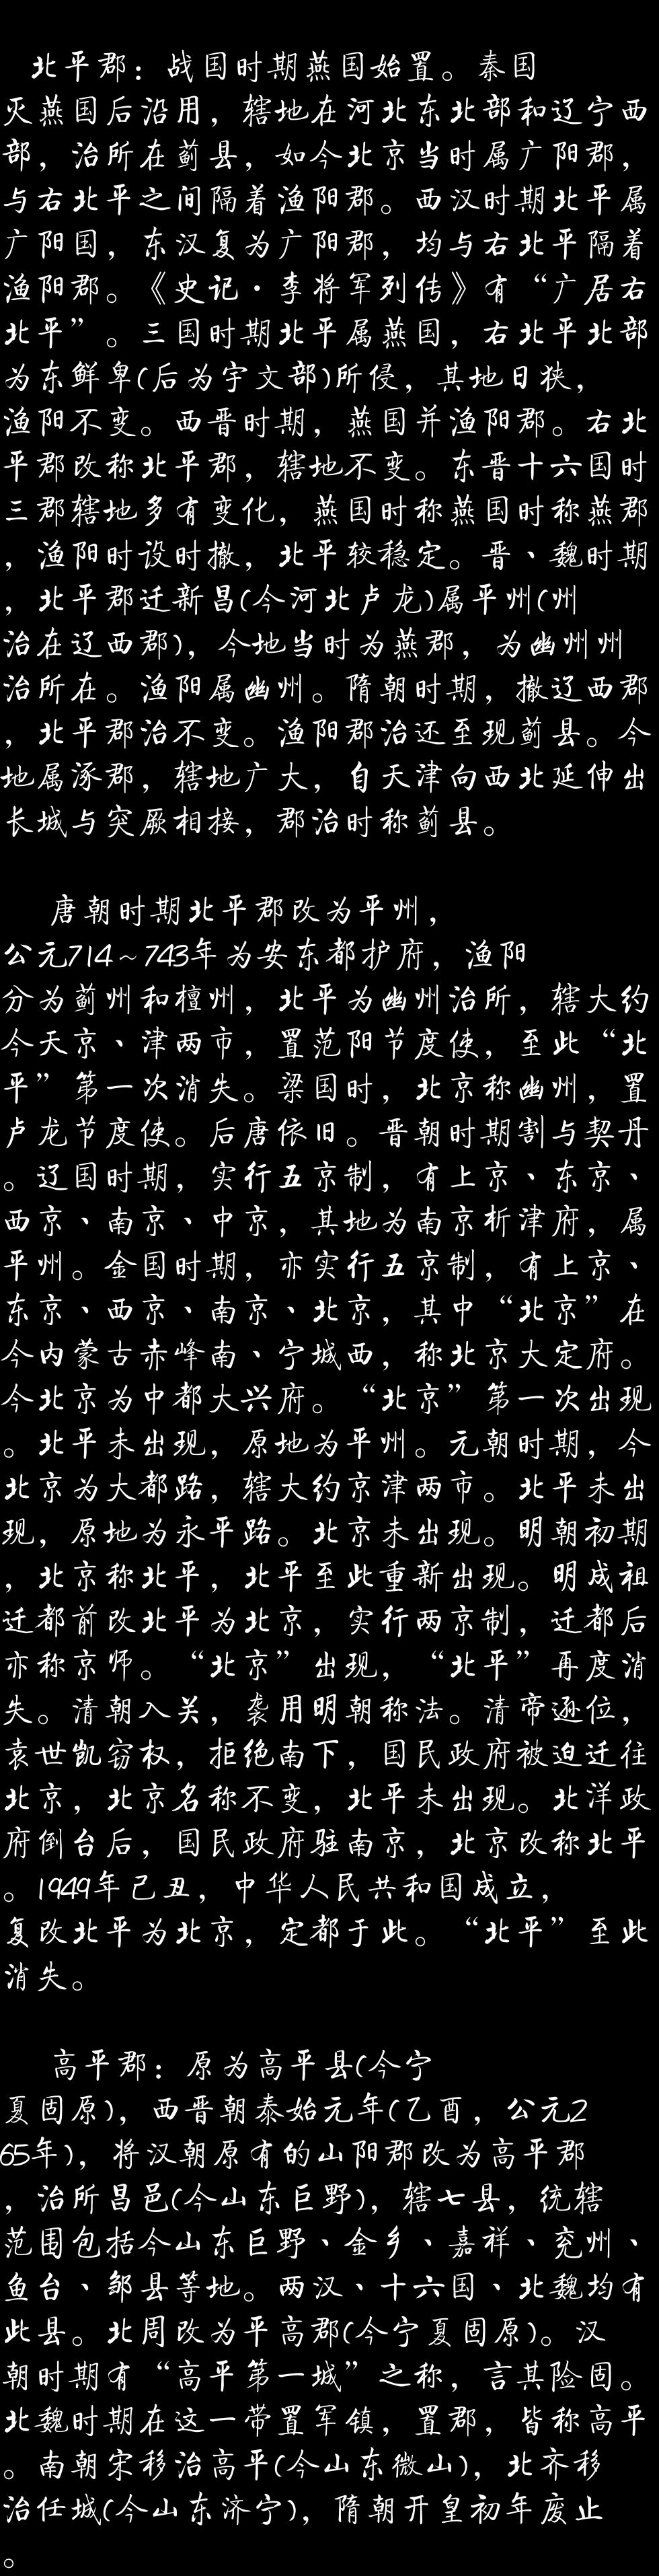 北平郡：战国时期燕国始置。秦国
灭燕国后沿用，辖地在河北东北部和辽宁西
部，治所在蓟县，如今北京当时属广阳郡，
与右北平之间隔着渔阳郡。西汉时期北平属
广阳国，东汉复为广阳郡，均与右北平隔着
渔阳郡。《史记·李将军列传》有“广居右
北平”。三国时期北平属燕国，右北平北部
为东鲜卑(后为宇文部)所侵，其地日狭，
渔阳不变。西晋时期，燕国并渔阳郡。右北
平郡改称北平郡，辖地不变。东晋十六国时
三郡辖地多有变化，燕国时称燕国时称燕郡
，渔阳时设时撤，北平较稳定。晋、魏时期
，北平郡迁新昌(今河北卢龙)属平州(州
治在辽西郡)，今地当时为燕郡，为幽州州
治所在。渔阳属幽州。隋朝时期，撤辽西郡
，北平郡治不变。渔阳郡治还至现蓟县。今
地属涿郡，辖地广大，自天津向西北延伸出
长城与突厥相接，郡治时称蓟县。
唐朝时期北平郡改为平州，
公元714～743年为安东都护府，渔阳
分为蓟州和檀州，北平为幽州治所，辖大约
今天京、津两市，置范阳节度使，至此“北
平”第一次消失。梁国时，北京称幽州，置
卢龙节度使。后唐依旧。晋朝时期割与契丹
。辽国时期，实行五京制，有上京、东京、
西京、南京、中京，其地为南京析津府，属
平州。金国时期，亦实行五京制，有上京、
东京、西京、南京、北京，其中“北京”在
今内蒙古赤峰南、宁城西，称北京大定府。
今北京为中都大兴府。“北京”第一次出现
。北平未出现，原地为平州。元朝时期，今
北京为大都路，辖大约京津两市。北平未出
现，原地为永平路。北京未出现。明朝初期
，北京称北平，北平至此重新出现。明成祖
迁都前改北平为北京，实行两京制，迁都后
亦称京师。“北京”出现，“北平”再度消
失。清朝入关，袭用明朝称法。清帝逊位，
袁世凯窃权，拒绝南下，国民政府被迫迁往
北京，北京名称不变，北平未出现。北洋政
府倒台后，国民政府驻南京，北京改称北平
。1949年己丑，中华人民共和国成立，
复改北平为北京，定都于此。“北平”至此
消失。
高平郡：原为高平县(今宁
夏固原)，西晋朝泰始元年(乙酉，公元2
65年)，将汉朝原有的山阳郡改为高平郡
，治所昌邑(今山东巨野)，辖七县，统辖
范围包括今山东巨野、金乡、嘉祥、兖州、
鱼台、邹县等地。两汉、十六国、北魏均有
此县。北周改为平高郡(今宁夏固原)。汉
朝时期有“高平第一城”之称，言其险固。
北魏时期在这一带置军镇，置郡，皆称高平
。南朝宋移治高平(今山东微山)，北齐移
治任城(今山东济宁)，隋朝开皇初年废止
。